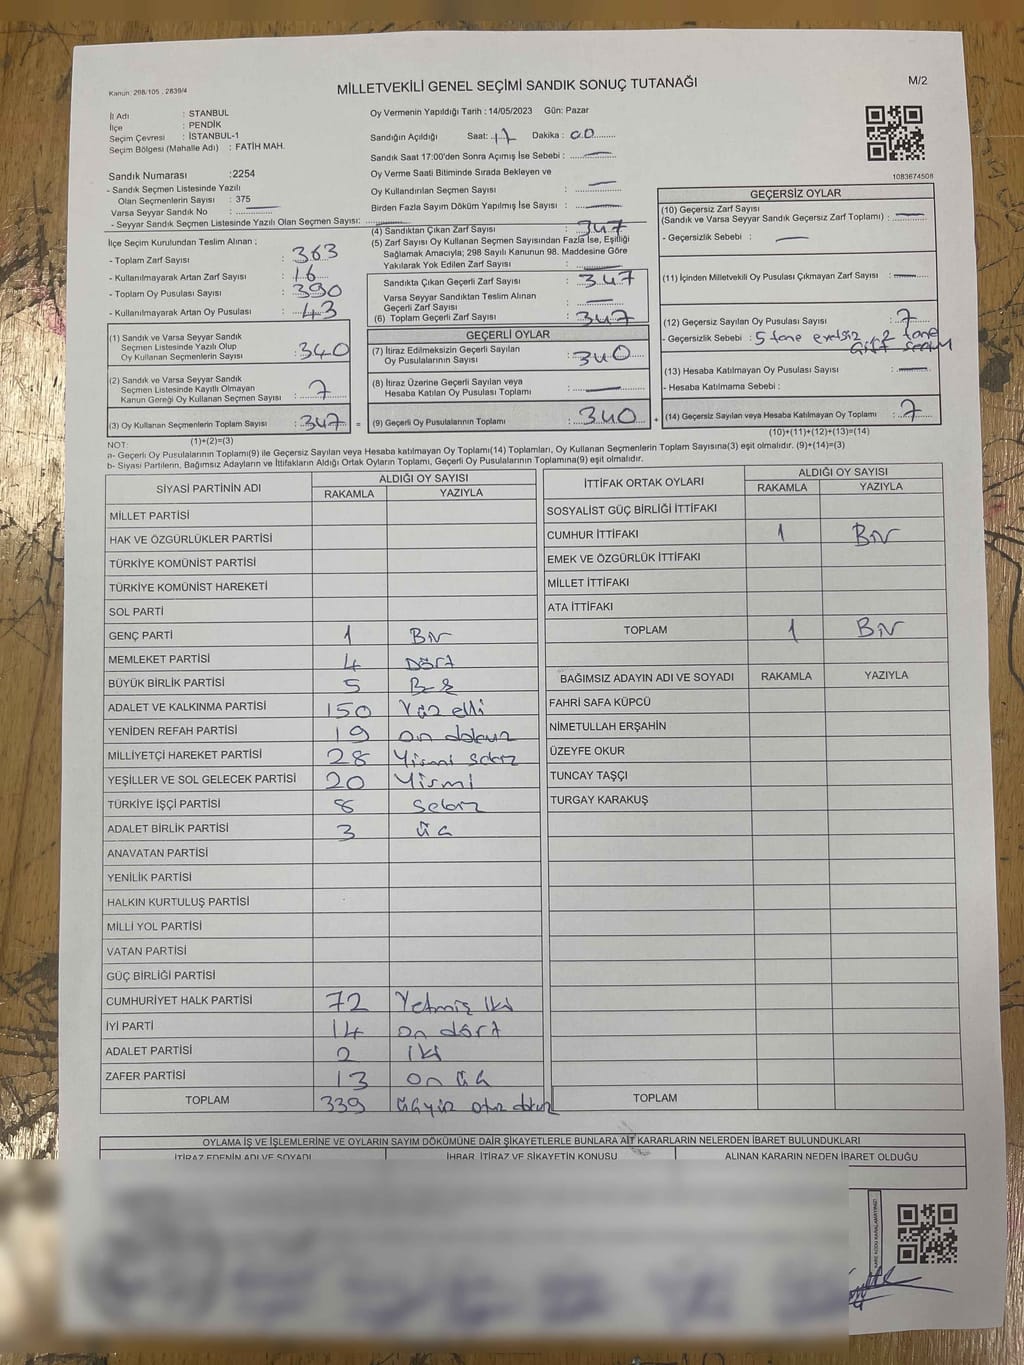 Kanun: 298/105 , 2839/4
MİLLETVEKİLİ GENEL SEÇİMİ SANDIK SONUÇ TUTANAĞI
M/2
İl Adı : STANBUL
İlçe : PENDİK
Seçim Çevresi : İSTANBUL-1
Seçim Bölgesi (Mahalle Adı) : FATİH MAH.
Oy Vermenin Yapıldığı Tarih : 14/05/2023 Gün: Pazar
Sandığın Açıldığı Saat: 17 Dakika : 00
Sandık Saat 17:00'den Sonra Açımış İse Sebebi : —
Oy Verme Saati Bitiminde Sırada Bekleyen ve
Oy Kullandırılan Seçmen Sayısı : —
Birden Fazla Sayım Döküm Yapılmış İse Sayısı : —
1083674508
Sandık Numarası :2254
- Sandık Seçmen Listesinde Yazılı
Olan Seçmenlerin Sayısı : 375
Varsa Seyyar Sandık No : —
- Seyyar Sandık Listesinde Yazılı Olan Seçmen Sayısı: —
İlçe Seçim Kurulundan Teslim Alınan ;
- Toplam Zarf Sayısı : 363
- Kullanılmayarak Artan Zarf Sayısı : 16
- Toplam Oy Pusulası Sayısı : 390
- Kullanılmayarak Artan Oy Pusulası : 43
(1) Sandık ve Varsa Seyyar Sandık
Seçmen Listesinde Yazılı Olup
Oy Kullanan Seçmenlerin Sayısı : 340
(2) Sandık ve Varsa Seyyar Sandık
Seçmen Listesinde Kayıtlı Olmayan
Kanun Gereği Oy Kullanan Seçmen Sayısı : 7
(3) Oy Kullanan Seçmenlerin Toplam Sayısı : 347 =
(1)+(2)=(3)
(4) Sandıktan Çıkan Zarf Sayısı : 347
(5) Zarf Sayısı Oy Kullanan Seçmen Sayısından Fazla İse, Eşitliği
Sağlamak Amacıyla; 298 Sayılı Kanunun 98. Maddesine Göre
Yakılarak Yok Edilen Zarf Sayısı : —
Sandıkta Çıkan Geçerli Zarf Sayısı : 347
Varsa Seyyar Sandıktan Teslim Alınan
Geçerli Zarf Sayısı : —
(6) Toplam Geçerli Zarf Sayısı : 347
GEÇERLİ OYLAR
(7) İtiraz Edilmeksizin Geçerli Sayılan
Oy Pusulalarının Sayısı : 340
(8) İtiraz Üzerine Geçerli Sayılan veya
Hesaba Katılan Oy Pusulaları Toplamı : —
(9) Geçerli Oy Pusulalarının Toplamı : 340 +
GEÇERSİZ OYLAR
(10) Geçersiz Zarf Sayısı
(Sandık ve Varsa Seyyar Sandık Geçersiz Zarf Toplamı) : —
- Geçersizlik Sebebi : —
(11) İçinden Milletvekili Oy Pusulası Çıkmayan Zarf Sayısı : —
(12) Geçersiz Sayılan Oy Pusulası Sayısı : 7
- Geçersizlik Sebebi : 5 tane evetsiz 2 tane
Çift seçim
(13) Hesaba Katılmayan Oy Pusulası Sayısı : —
- Hesaba Katılmama Sebebi :
(14) Geçersiz Sayılan veya Hesaba Katılmayan Oy Toplamı : 7
(10)+(11)+(12)+(13)=(14)
NOT:
a- Geçerli Oy Pusulalarının Toplamı(9) ile Geçersiz Sayılan veya Hesaba katılmayan Oy Toplamı(14) Toplamları, Oy Kullanan Seçmenlerin Toplam Sayısına(3) eşit olmalıdır. (9)+(14)=(3)
b- Siyasi Partilerin, Bağımsız Adayların ve İttifakların Aldığı Ortak Oyların Toplamı, Geçerli Oy Pusulalarının Toplamına(9) eşit olmalıdır.
SİYASİ PARTİNİN ADI ALDIĞI OY SAYISI
RAKAMLA YAZIYLA
MİLLET PARTİSİ
HAK VE ÖZGÜRLÜKLER PARTİSİ
TÜRKİYE KOMÜNİST PARTİSİ
TÜRKİYE KOMÜNİST HAREKETİ
SOL PARTİ
GENÇ PARTİ 1 Bir
MEMLEKET PARTİSİ 4 Dört
BÜYÜK BİRLİK PARTİSİ 5 Beş
ADALET VE KALKINMA PARTİSİ 150 Yüz elli
YENİDEN REFAH PARTİSİ 19 on dokuz
MİLLİYETÇİ HAREKET PARTİSİ 28 Yirmi sekiz
YEŞİLLER VE SOL GELECEK PARTİSİ 20 Yirmi
TÜRKİYE İŞÇİ PARTİSİ 8 Sekiz
ADALET BİRLİK PARTİSİ 3 üç
ANAVATAN PARTİSİ
YENİLİK PARTİSİ
HALKIN KURTULUŞ PARTİSİ
MİLLİ YOL PARTİSİ
VATAN PARTİSİ
GÜÇ BİRLİĞİ PARTİSİ
CUMHURİYET HALK PARTİSİ 72 Yetmiş iki
İYİ PARTİ 14 on dört
ADALET PARTİSİ 2 iki
ZAFER PARTİSİ 13 on üç
TOPLAM 339 üçyüz otuz dokuz
İTTİFAK ORTAK OYLARI ALDIĞI OY SAYISI
RAKAMLA YAZIYLA
SOSYALİST GÜÇ BİRLİĞİ İTTİFAKI
CUMHUR İTTİFAKI 1 Bir
EMEK VE ÖZGÜRLÜK İTTİFAKI
MİLLET İTTİFAKI
ATA İTTİFAKI
TOPLAM 1 Bir
BAĞIMSIZ ADAYIN ADI VE SOYADI RAKAMLA YAZIYLA
FAHRİ SAFA KÜPCÜ
NİMETULLAH ERŞAHİN
ÜZEYFE OKUR
TUNCAY TAŞÇI
TURGAY KARAKUŞ
TOPLAM
OYLAMA İŞ VE İŞLEMLERİNE VE OYLARIN SAYIM DÖKÜMÜNE DAİR ŞİKAYETLERLE BUNLARA AİT KARARLARIN NELERDEN İBARET BULUNDUKLARI
İTİRAZ EDENİN ADI VE SOYADI İHBAR, İTİRAZ VE ŞİKAYETİN KONUSU ALINAN KARARIN NEDEN İBARET OLDUĞU